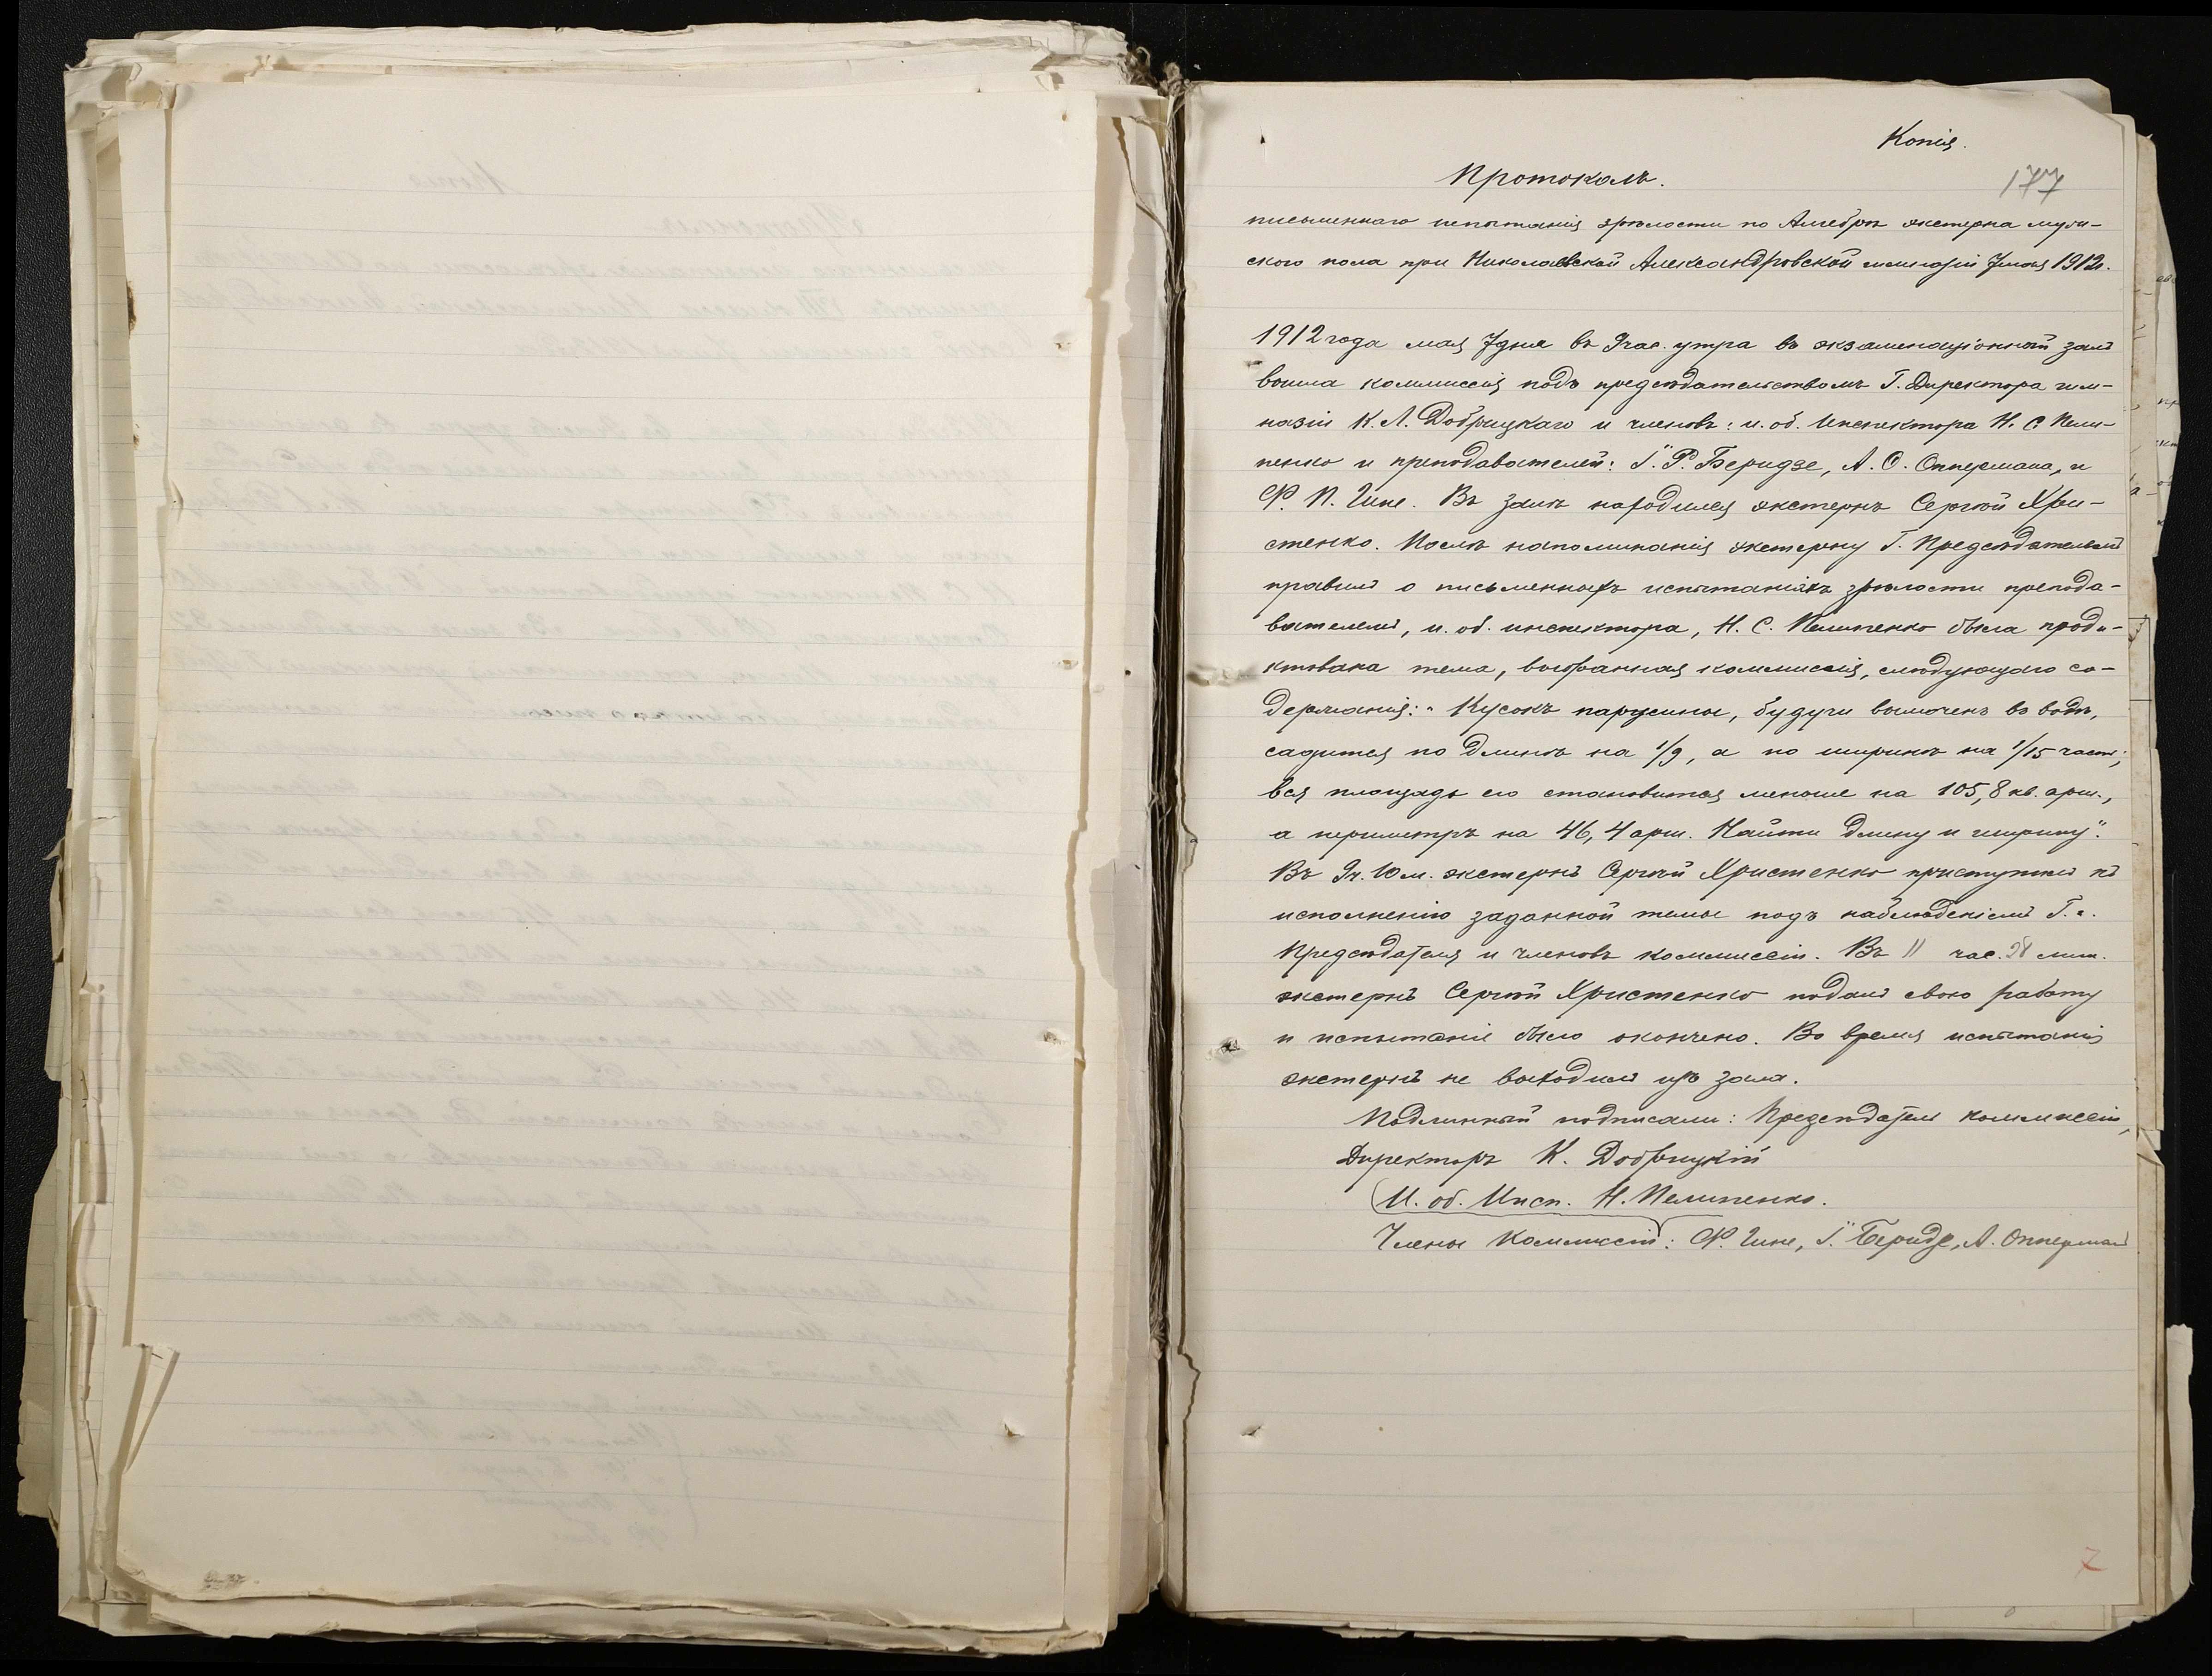 Копія.
177
Протоколъ.
письменнаго испытанія зрѣлости по Алгебрѣ экстерна муж-
ского пола при Николаевской Александровской гимназіи 7 мая 1912 г.
1912 года мая 7 дня въ 9 час. утра въ экзаменаціонный залъ
вошла коммиссія подъ предсѣдательствомъ Г. Директора гим-
назіи К. Л. Добрицкаго и членовъ: и. об. Инспектора Н. С. Пели-
пенко и преподавателей: І. Р. Беридзе, А. О. Оппермана, и
Ф. П. Гине. Въ залѣ находился экстернъ Сергѣй Хри-
стенко. Послѣ напоминанія экстерну Г. Предсѣдателемъ
правилъ о письменныхъ испытаніяхъ зрѣлости препода-
вателемъ, и. об. инспектора, Н. С. Пелипенко была проди-
ктована тема, выбранная коммиссія, слѣдующаго со-
держанія: „Кусокъ парусины, будучи вымоченъ въ водѣ,
садится по длинѣ на 1/9, а по ширинѣ на 1/15 часть;
вся площадь его становится меньше на 105,8 кв. арш.,
а периметръ на 46,4 арш. Найти длину и ширину".
Въ 9 ч. 10 м. экстернъ Сергѣй Христенко приступилъ къ
исполненію заданной темы подъ наблюденіемъ Г. г.
Предсѣдателя и членовъ коммиссіи. Въ 11 час. 28 мин.
экстернъ Сергѣй Христенко подалъ свою работу
и испытаніе было окончено. Во время испытанія
экстернъ не выходилъ изъ зала.
Подлинный подписали: Предсѣдатель коммиссіи,
Директоръ К. Добрицкій
И. об. Инсп. Н. Пелипенко.
Члены Коммиссіи: Ф. Гине, І. Беридзе, А. Опперманъ
7